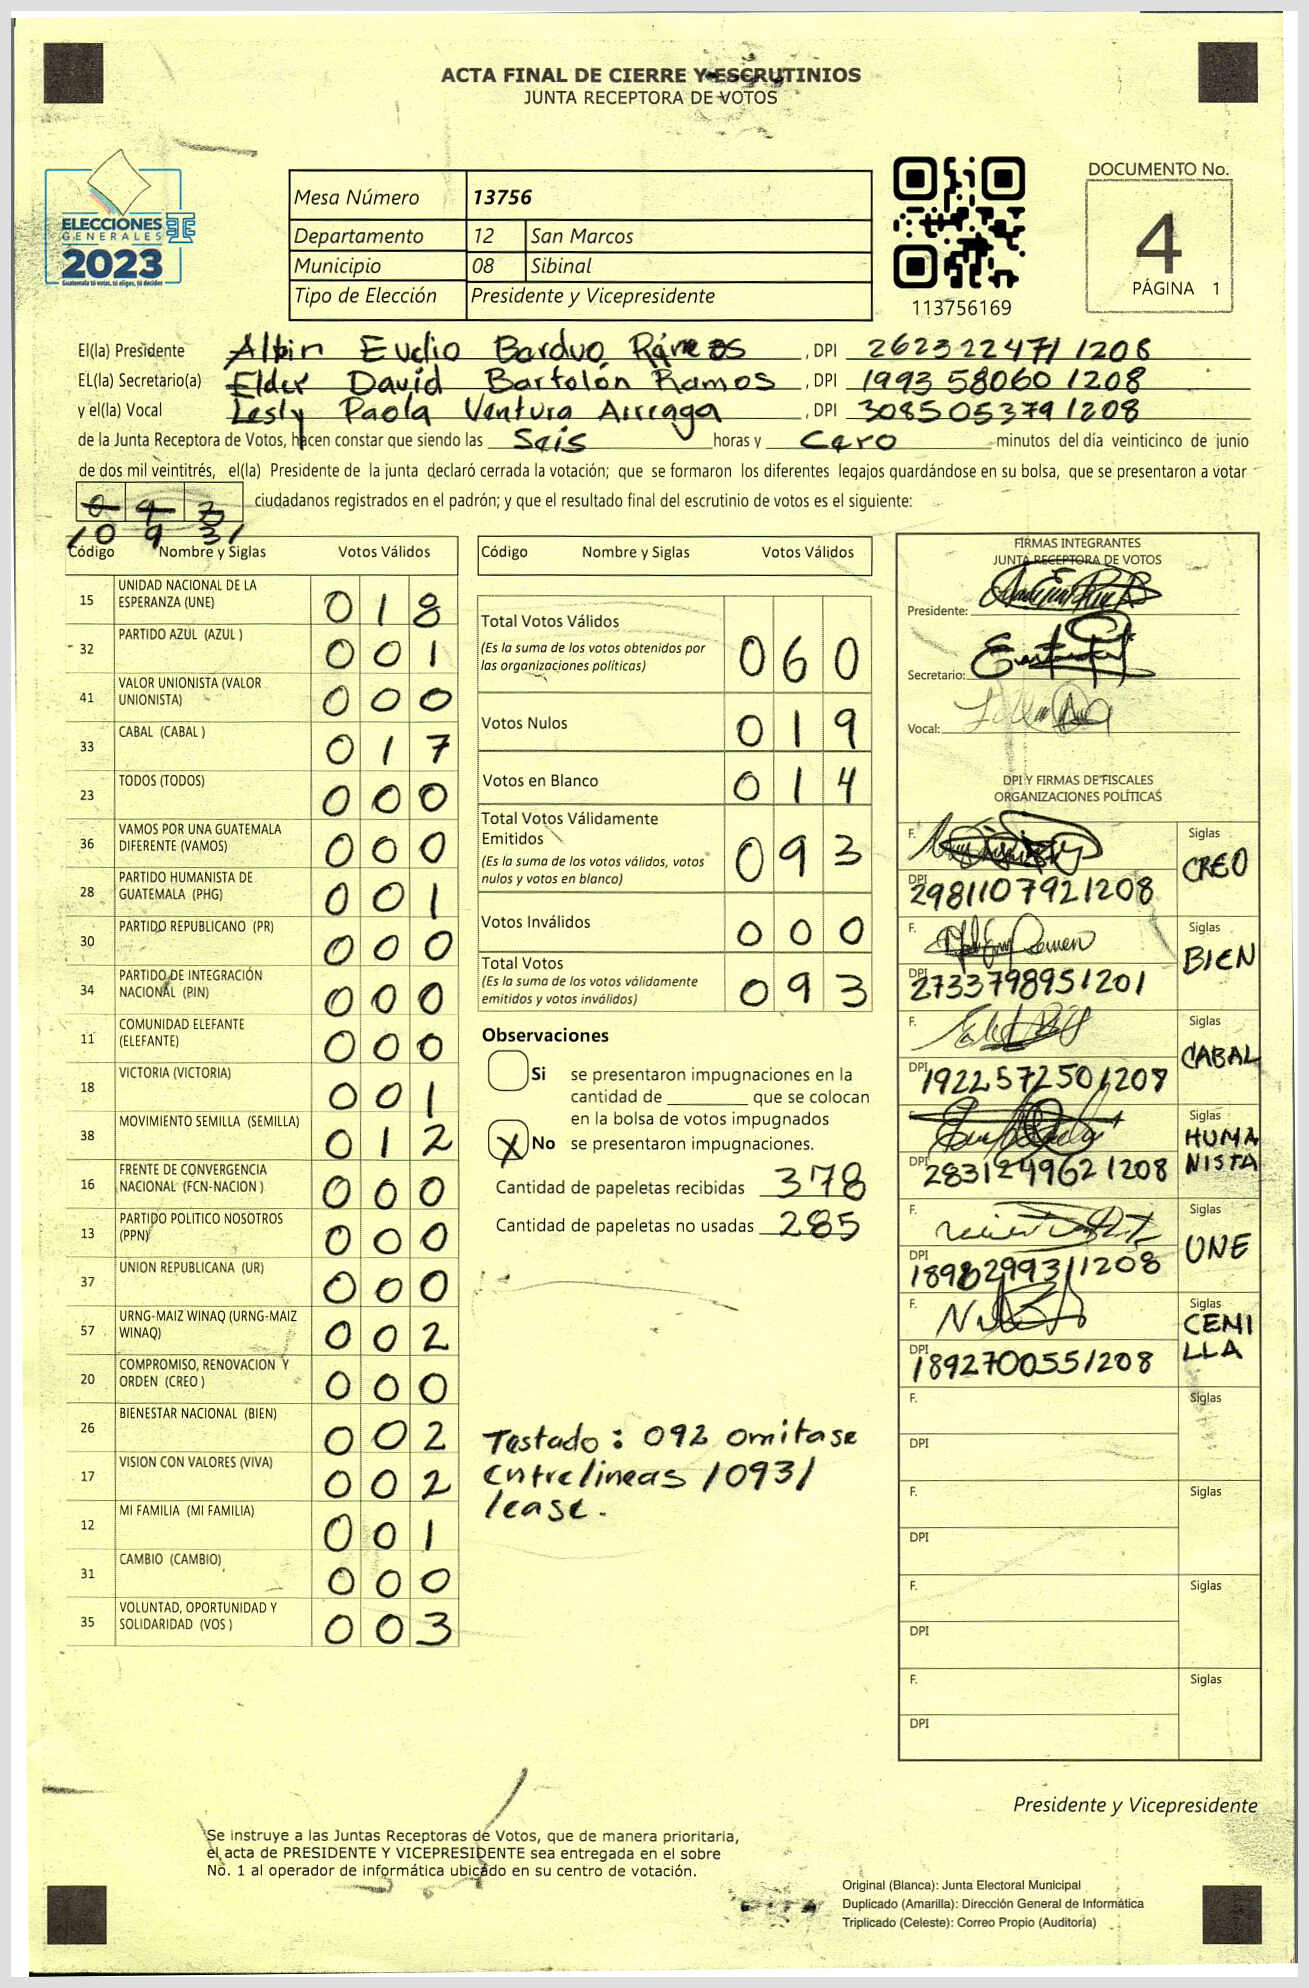 ACTA FINAL DE CIERRE Y ESCRUTINIOS
JUNTA RECEPTORA DE VOTOS
ELECCIONES
GENERALES
2023
Guatemala tú votas, tú eliges, tú decides
Mesa Número 13756
Departamento 12 San Marcos
Municipio 08 Sibinal
Tipo de Elección Presidente y Vicepresidente
113756169
DOCUMENTO No.
4
PÁGINA 1
El(la) Presidente Albin Evelio Barduo Rámos , DPI 262322471 1208
EL(la) Secretario(a) Elder David Bartolón Ramos , DPI 1993 58060 1208
y el(la) Vocal Lesly Paola Ventura Arreaga , DPI 308505379 1208
de la Junta Receptora de Votos, hacen constar que siendo las Seis horas y Cero minutos del día veinticinco de junio
de dos mil veintitrés, el(la) Presidente de la junta declaró cerrada la votación; que se formaron los diferentes legajos guardándose en su bolsa, que se presentaron a votar
ciudadanos registrados en el padrón; y que el resultado final del escrutinio de votos es el siguiente:
/093/
Código Nombre y Siglas Votos Válidos
15 UNIDAD NACIONAL DE LA ESPERANZA (UNE) 018
32 PARTIDO AZUL (AZUL ) 001
41 VALOR UNIONISTA (VALOR UNIONISTA) 000
33 CABAL (CABAL ) 017
23 TODOS (TODOS) 000
36 VAMOS POR UNA GUATEMALA DIFERENTE (VAMOS) 000
28 PARTIDO HUMANISTA DE GUATEMALA (PHG) 001
30 PARTIDO REPUBLICANO (PR) 000
34 PARTIDO DE INTEGRACIÓN NACIONAL (PIN) 000
11 COMUNIDAD ELEFANTE (ELEFANTE) 000
18 VICTORIA (VICTORIA) 001
38 MOVIMIENTO SEMILLA (SEMILLA) 012
16 FRENTE DE CONVERGENCIA NACIONAL (FCN-NACION ) 000
13 PARTIDO POLITICO NOSOTROS (PPN) 000
37 UNION REPUBLICANA (UR) 000
57 URNG-MAIZ WINAQ (URNG-MAIZ WINAQ) 002
20 COMPROMISO, RENOVACION Y ORDEN (CREO ) 000
26 BIENESTAR NACIONAL (BIEN) 002
17 VISION CON VALORES (VIVA) 002
12 MI FAMILIA (MI FAMILIA) 001
31 CAMBIO (CAMBIO) 000
35 VOLUNTAD, OPORTUNIDAD Y SOLIDARIDAD (VOS ) 003
Código Nombre y Siglas Votos Válidos
Total Votos Válidos 060
(Es la suma de los votos obtenidos por
las organizaciones políticas)
Votos Nulos 019
Votos en Blanco 014
Total Votos Válidamente
Emitidos 093
(Es la suma de los votos válidos, votos
nulos y votos en blanco)
Votos Inválidos 000
Total Votos 093
(Es la suma de los votos válidamente
emitidos y votos inválidos)
Observaciones
Si se presentaron impugnaciones en la
cantidad de ________ que se colocan
en la bolsa de votos impugnados
X No se presentaron impugnaciones.
Cantidad de papeletas recibidas 378
Cantidad de papeletas no usadas 285
Testado: 092 omitase
entrelineas /093/
lease.
FIRMAS INTEGRANTES
JUNTA RECEPTORA DE VOTOS
Presidente:
Secretario:
Vocal:
DPI Y FIRMAS DE FISCALES
ORGANIZACIONES POLÍTICAS
F. Siglas CREO
DPI 2981107921208
F. Siglas BIEN
DPI 2733798951201
F. Siglas CABAL
DPI 1922572501208
F. Siglas HUMA
NISTA
DPI 2831249621208
F. Siglas UNE
DPI
F. Siglas CEMI
LLA
DPI 1892700551208
F. Siglas
DPI
F. Siglas
DPI
F. Siglas
DPI
F. Siglas
DPI
Presidente y Vicepresidente
Se instruye a las Juntas Receptoras de Votos, que de manera prioritaria,
el acta de PRESIDENTE Y VICEPRESIDENTE sea entregada en el sobre
No. 1 al operador de informática ubicado en su centro de votación.
Original (Blanca): Junta Electoral Municipal
Duplicado (Amarilla): Dirección General de Informática
Triplicado (Celeste): Correo Propio (Auditoría)